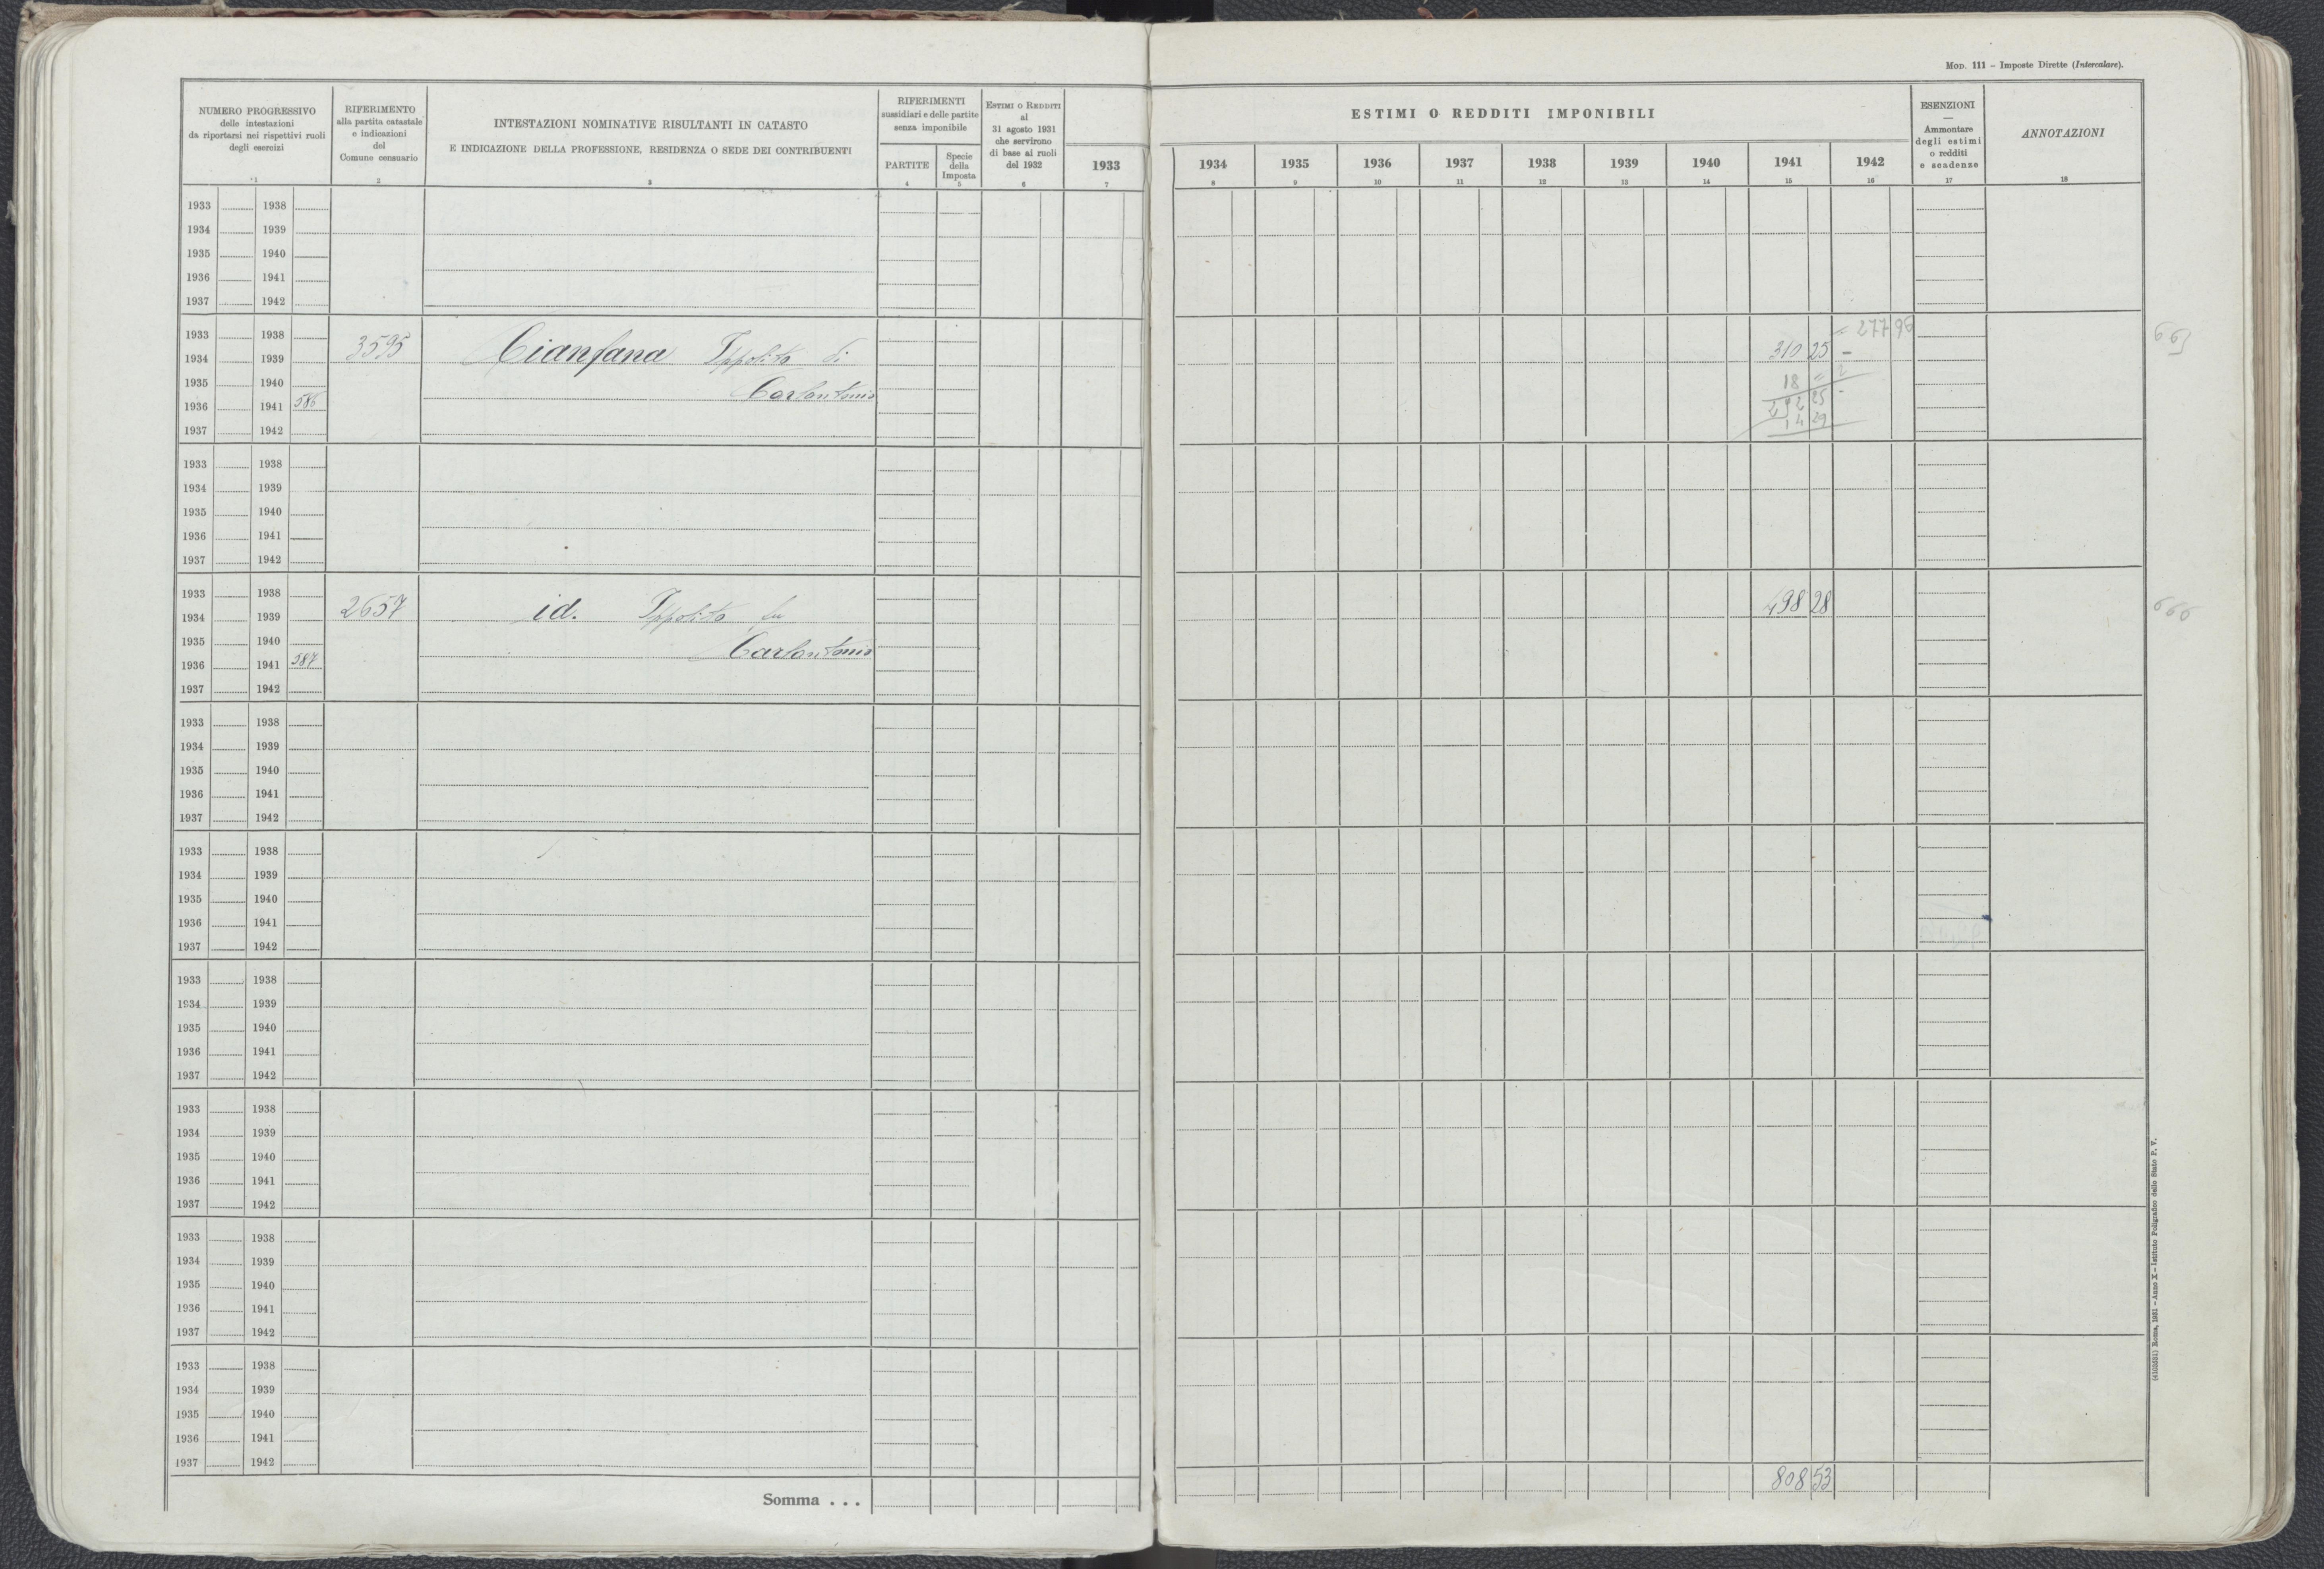 Mod. 111 – Imposte Dirette (Intercalare).
NUMERO PROGRESSIVO
delle intestazioni
da riportarsi nei rispettivi ruoli
degli esercizi
1
RIFERIMENTO
alla partita catastale
e indicazioni
del
Comune censuario
2
INTESTAZIONI NOMINATIVE RISULTANTI IN CATASTO
E INDICAZIONE DELLA PROFESSIONE, RESIDENZA O SEDE DEI CONTRIBUENTI
3
RIFERIMENTI
sussidiari e delle partite
senza imponibile
PARTITE
4
Specie
della
Imposta
5
Estimi o Redditi
al
31 agosto 1931
che servirono
di base ai ruoli
del 1932
6
1933
7
ESTIMI O REDDITI IMPONIBILI
1934 1935 1936 1937 1938 1939 1940 1941 1942
8 9 10 11 12 13 14 15 16
ESENZIONI
—
Ammontare
degli estimi
o redditi
e scadenze
17
ANNOTAZIONI
18
1933 1938
1934 1939
1935 1940
1936 1941
1937 1942
1933 1938 277 96
1934 1939 3595 Cianfana Ippolito di 310 25 –
1935 1940 Carlantonio 18 =
1936 1941 586 292 25
1937 1942 14 29
665
1933 1938
1934 1939
1935 1940
1936 1941
1937 1942
1933 1938
1934 1939 2657 id. Ippolito fu 498 28
1935 1940 Carlantonio
1936 1941 587
1937 1942
666
1933 1938
1934 1939
1935 1940
1936 1941
1937 1942
1933 1938
1934 1939
1935 1940
1936 1941
1937 1942
1933 1938
1934 1939
1935 1940
1936 1941
1937 1942
1933 1938
1934 1939
1935 1940
1936 1941
1937 1942
1933 1938
1934 1939
1935 1940
1936 1941
1937 1942
1933 1938
1934 1939
1935 1940
1936 1941
1937 1942
Somma . . . 808 53
(4103531) Roma, 1931 – Anno X – Istituto Poligrafico dello Stato P. V.